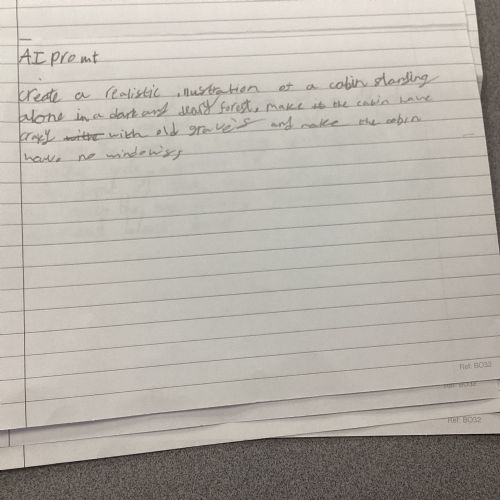 AI promt
create a realistic illustration of a cabin standing
alone in a dark and deary forest, make the cabin have
crazy with old grave's and make the cabin
have no window's,
Ref: BO32
Ref: BO32
Ref: BO32